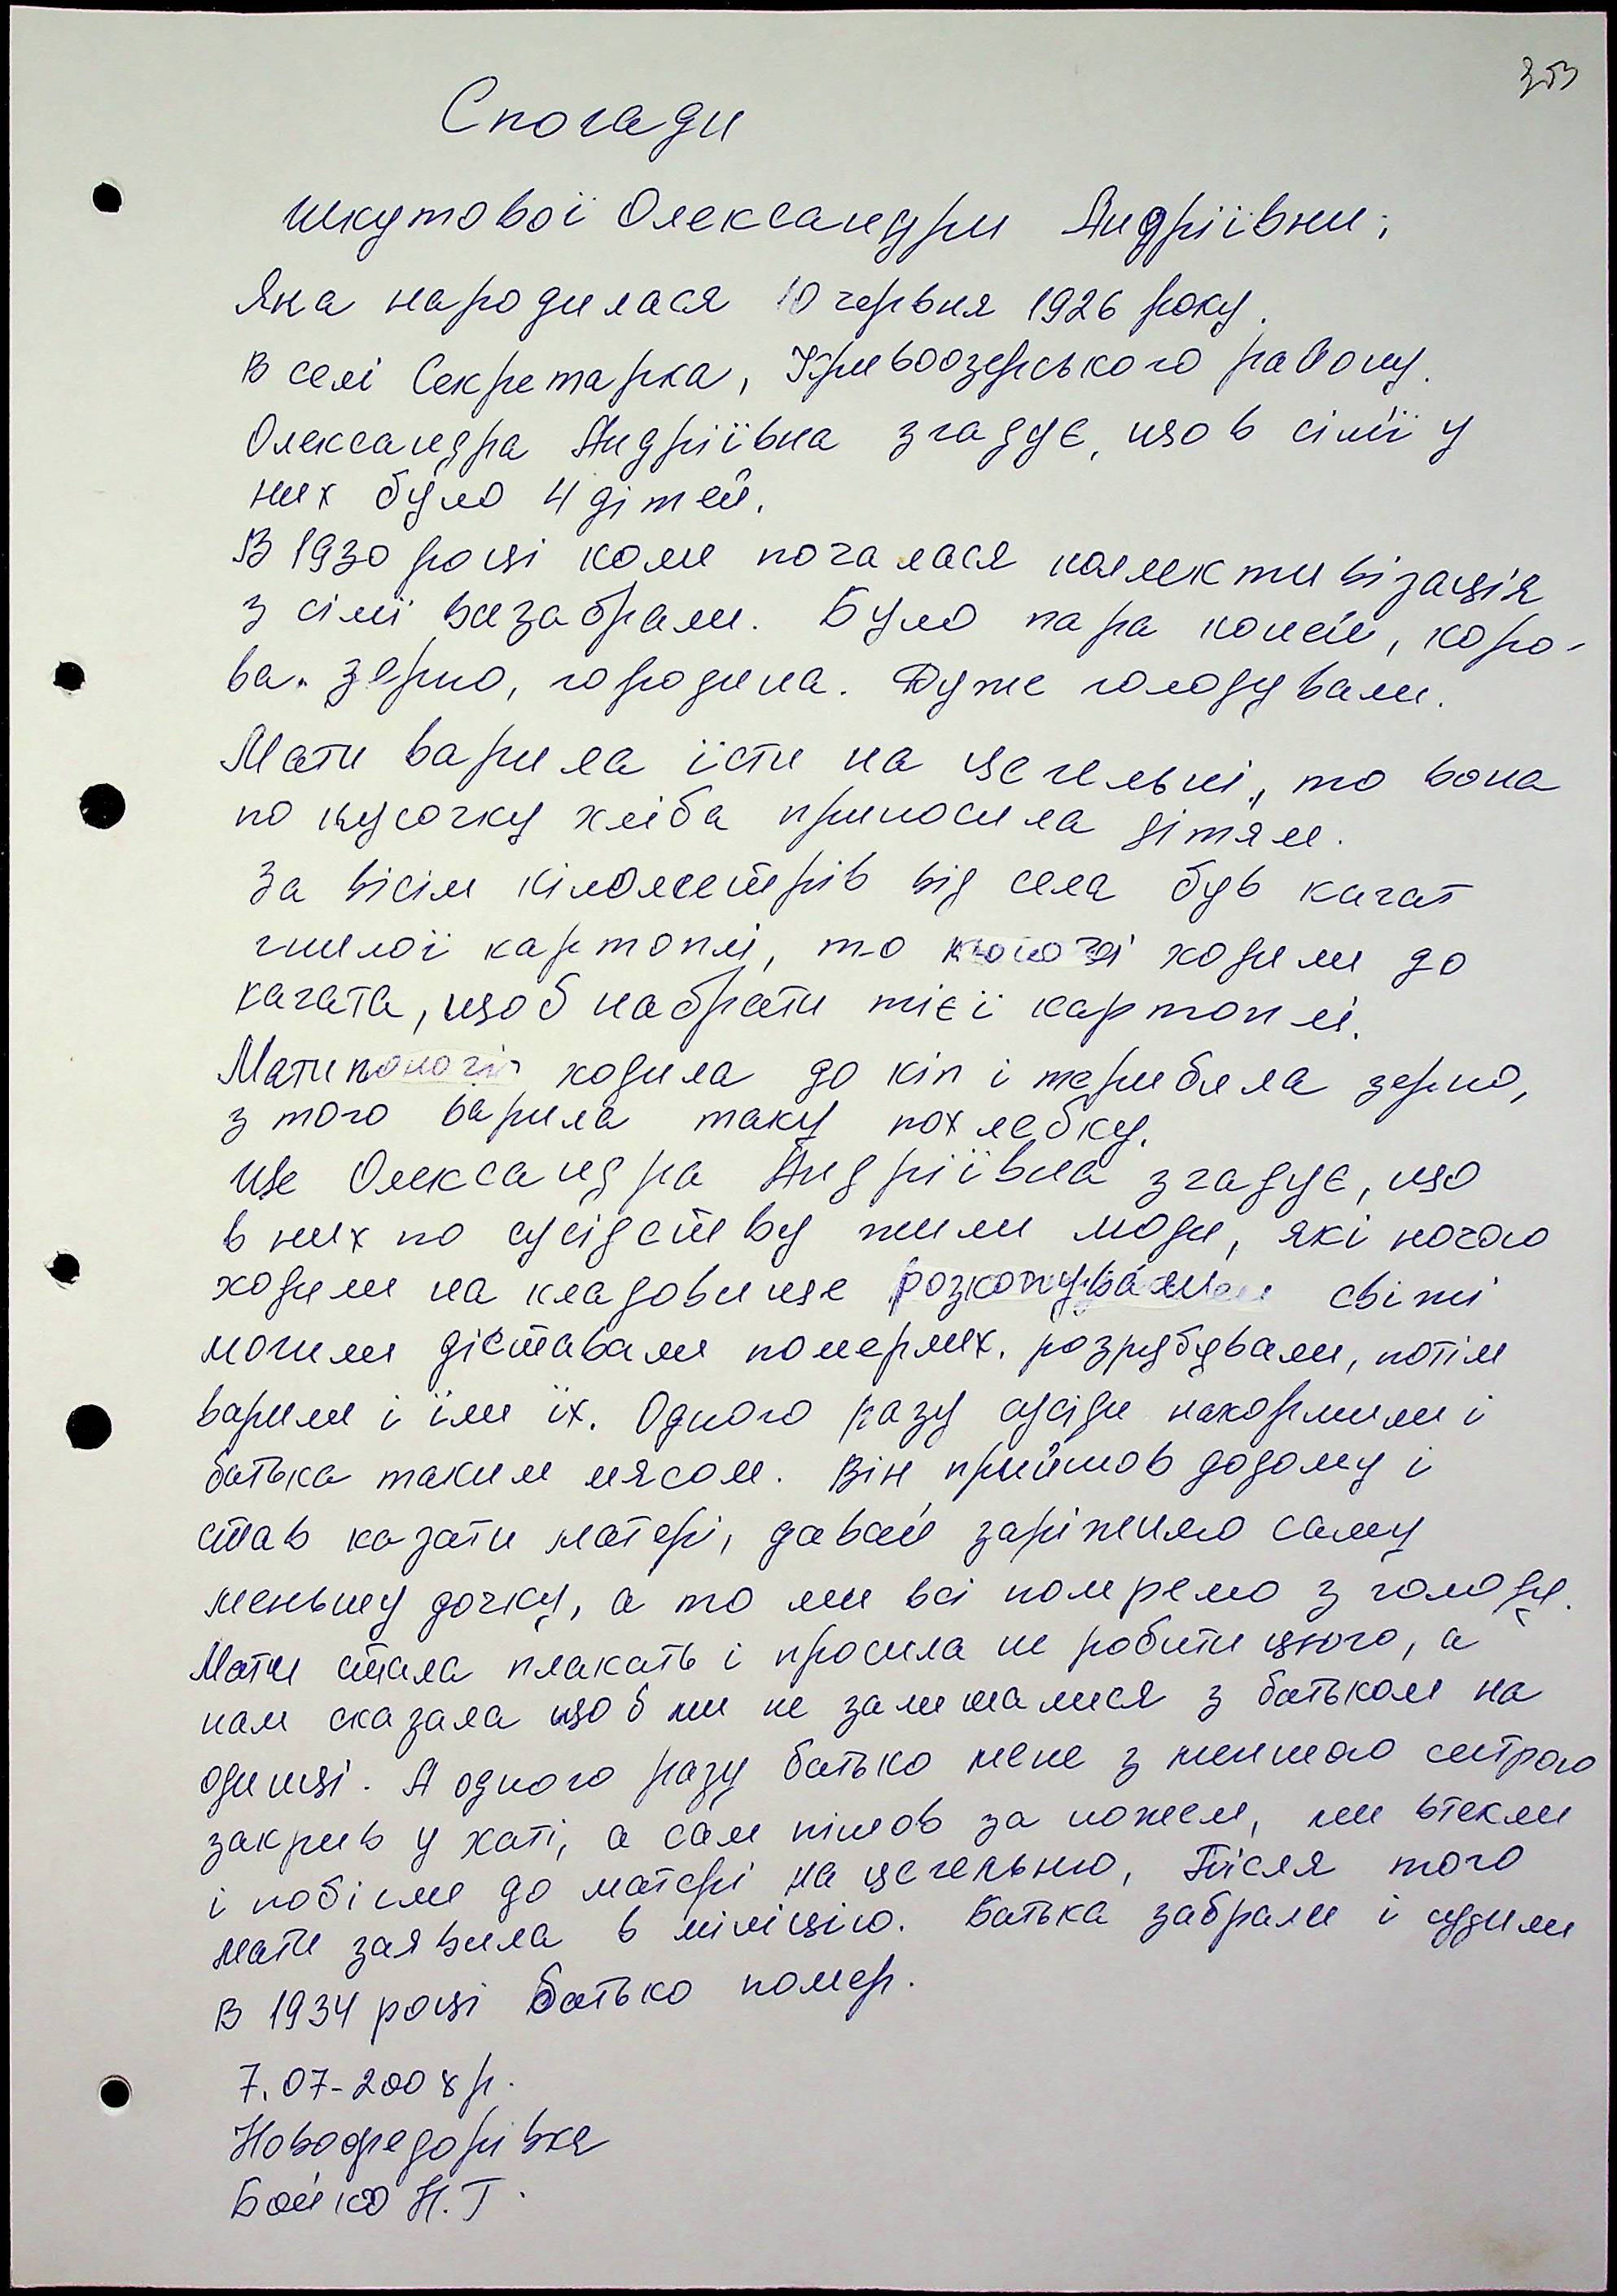 353
Спогади
Шкутової Олександри Андріївни,
Яка народилася 10 червня 1926 року.
В селі Секретарка, Кривоозерського району.
Олександра Андріївна згадує, що в сімї у
них було 4 дітей.
В 1930 році коли почалася коллективізація
з сімї всезабрали. Було пара коней, коро-
ва. зерно, городина. Дуже голодували.
Мати варила їсти на цегельні, то вона
по кусочку хліба приносила дітям.
За вісім кілометрів від села був кагат
гнилої картоплі, то ходили до
кагата, щоб набрати тієї картоплі.
Мати ходила до кіп і терибила зерно,
з того варила таку похлебку.
Ще Олександра Андріївна згадує, що
в них по сусідству жили люди, які ночою
ходили на кладовище розкопували свіжі
могили діставали померлих. розрубували, потім
варили і їли їх. Одного разу сусіди накормили і
батька таким мясом. Він прийшов додому і
став казати матері, давай заріжимо саму
меньшу дочку, а то ми всі помремо з голоду.
Мати стала плакать і просила не робити цього, а
нам сказала щоб ми не залишалися з батьком на
одинці. А одного разу батько мене з меншою сетрою
закрив у хаті, а сам пішов за ножем, ми втекли
і побігли до матері на цегельню, Після того
мати заявила в міліцію. Батька забрали і судили
В 1934 році батько помер.
7.07-2008 р.
Новофедорівка
Бойко Н.Г.